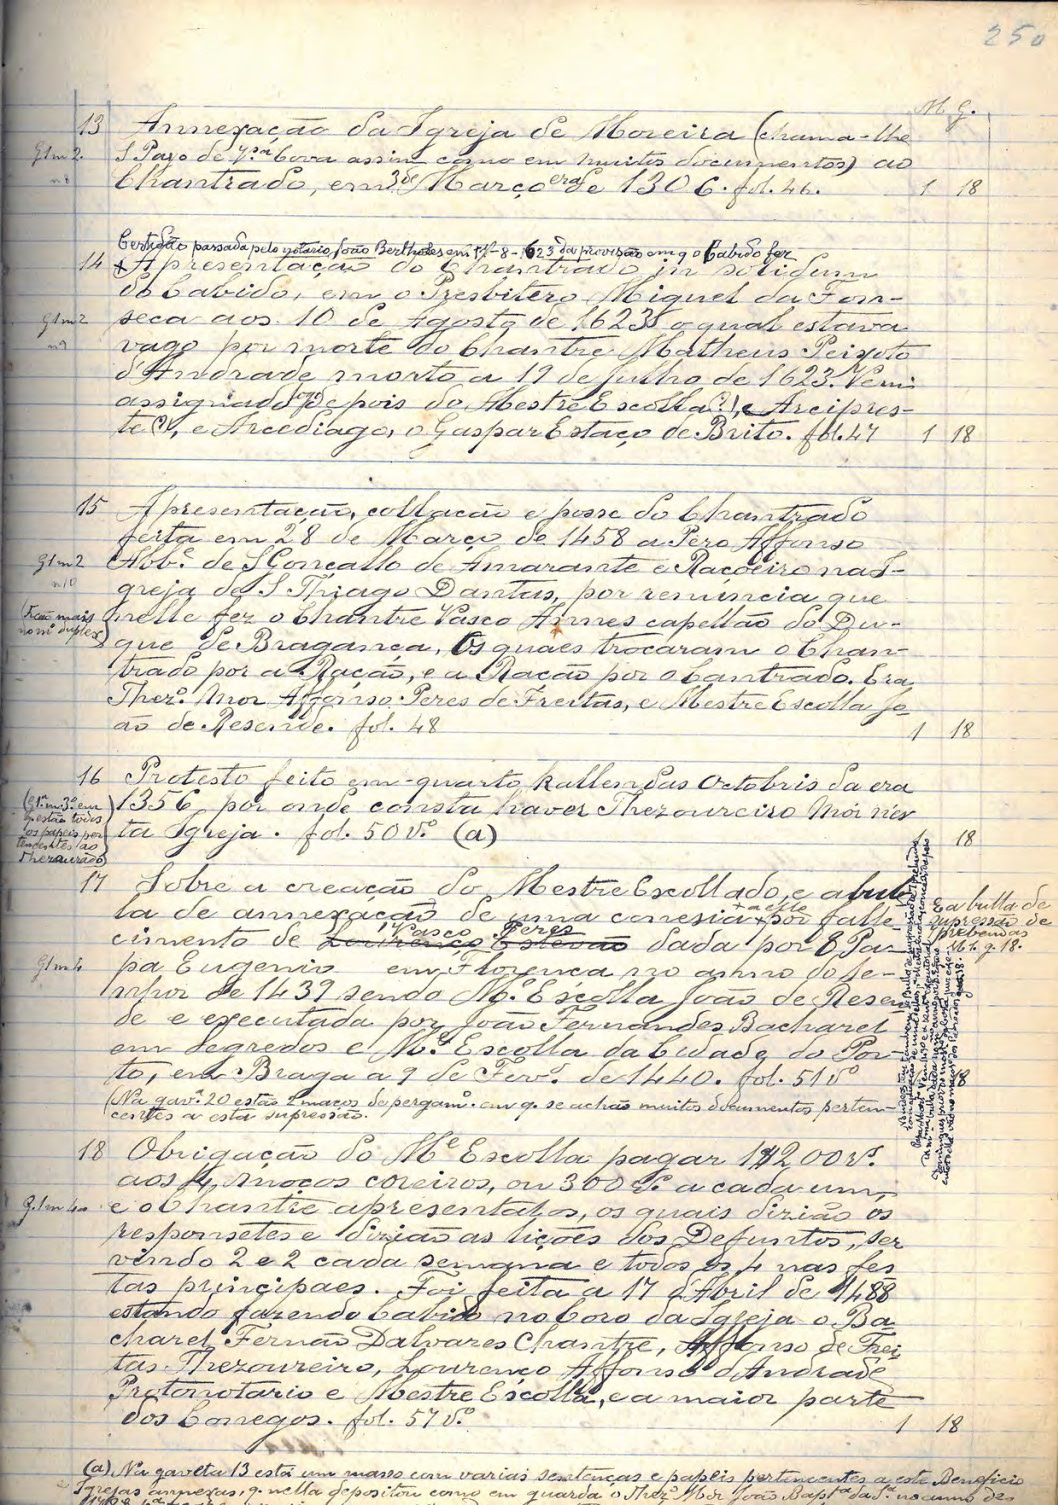 250
M. G.
13 Annexação da Igreja de Moreira (chama-lhe
G1m2. S Payo de Vª Cova assim como em muitos documentos) ao
Chantrado, em 3 de Março era de 1306. fol. 46. 1 18
Certidão passada pelo notario João Bertholes em 17-8-1623 da provisão em q o Cabido fez
14 + Apresentação do Chantrado in solidum
do Cabido, em o Presbitero Miguel da Fon-
G1m2 seca aos 10 de Agosto de 1623 o qual estava
n9 vago por morte do Chantre Matheus Peixoto
d'Andrade morto a 19 de Julho de 1623. Vem
assignado depois do Mestre Escolla (?), e Arcipres-
te (?), e Arcediago, o Gaspar Estaço de Brito. fol. 47 1 18
15 Apresentação, collação e posse do Chantrado
feita em 28 de Março de 1458 a Pero Affonso
G1m2 Abbe. de S Gonçallo de Amarante e Raçoeiro na I-
n10 greja de S Thiago Dantas, por renuncia que
nelle fez o Chantre Vasco Annes capellão do Du-
que de Bragança, Os quaes trocaram o Chan-
trado por a Ração, e a Ração por o Cantrado. Era
Thezº. Mor Affonso Peres de Freitas, e Mestre Escolla Jo-
ão de Resende. fol. 48 1 18
16 Protesto feito em quarto kallendas Octobris da era
1356, por onde consta haver Thezoureiro Mór nes
ta Igreja. fol. 50 vº. (a) 1 18
(G1ª. m. 3º em
q. estão todos
os papeis per
tencentes ao
Thezourado)
17 Sobre a creação do Mestre Escollado, e a bul-
la de annexação de uma conesia + por falle-
cimento de Lourenço Estevão Vasco Peres dada por o Pa-
G1m4 pa Eugenio em Florença no anno do Se-
nhor de 1439 sendo Mº. Escolla João de Resen
de e executada por João Fernandes Bacharel
em Degredos e Mº. Escolla da Cidade do Por-
to, em Braga a 9 de Fevº. de 1440. fol. 51 vº 18
(Na gavª. 20 estão 2 maços de pergamº. em q. se achão muitos documentos perten-
centes a esta supressão.
E a bulla de
supressão de
prebendas
M. 4. g. 18.
18 Obrigação do Me Escolla pagar 1200 rs.
aos 4 moços coreiros, ou 300 rs. a cada um,
G.1m4 e o Chantre apresental-os, os quais dizião os
responsetes e dizião as lições dos Defuntos, ser
vindo 2 e 2 cada semana e todos os 4 nas fes
tas principaes. Foi feita a 17 d'Abril de 1488
estando fazendo Cabido no Coro da Igreja o Ba
charel Fernão Dalvares Chantre, Affonso de Frei
tas Thezoureiro, Lourenço Affonso d'Andrade
Protonotario e Mestre Escolla, e a maior parte
dos Conegos. fol. 57 vº. 1 18
(a) Na gaveta 13 está um masso com varias sentenças e papeis pertencentes a este Beneficio
Igrejas annexas, q. nella depositou como em guarda o Thezº Mór João Baptª da Sª. no anno de